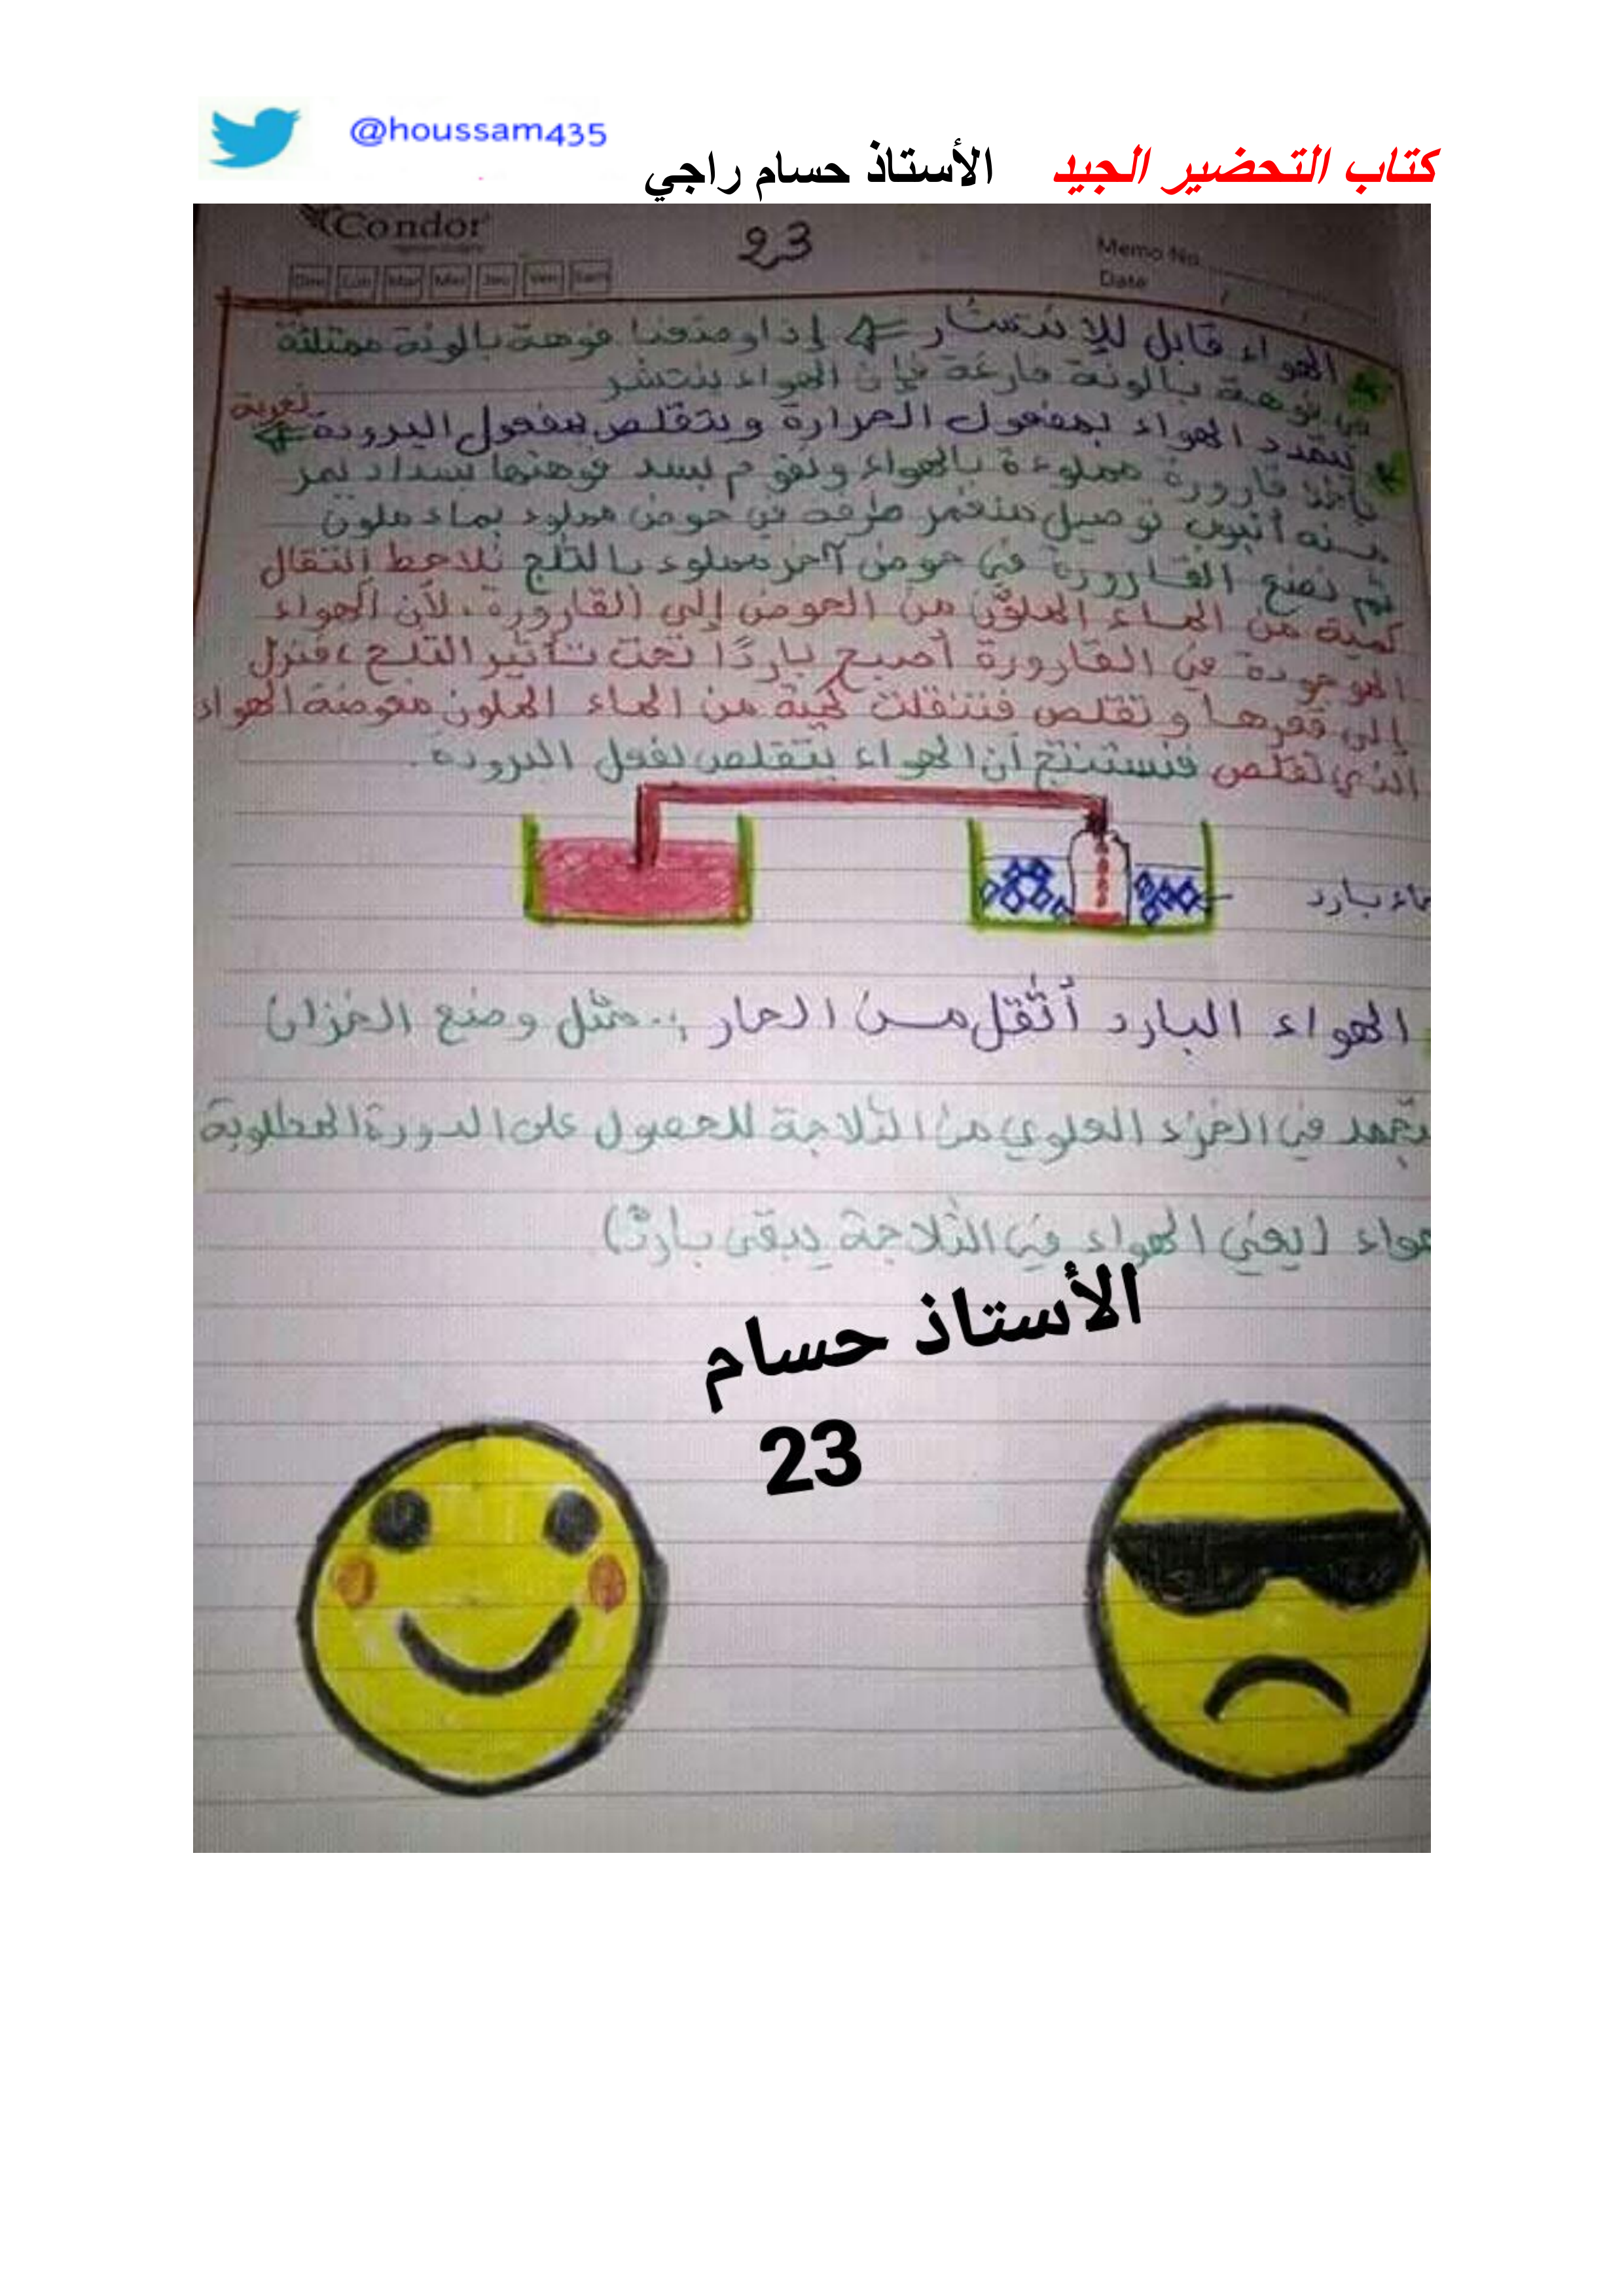 @houssam435
كتاب التحضير الجيد الأستاذ حسام راجي
Condor
23
Memo No
Date
Dim Lun Mar Mer Jeu Ven Sam
الهواء قابل للإنتشار ⇐ إذا وضعنا فوهة بالونة ممتلئة
في فوهة بالونة فارغة فإن الهواء ينتشر
يتمدد الهواء بمفعول الحرارة ويتقلص بمفعول البرودة تجربة
نأخذ قارورة مملوءة بالهواء ونقوم بسد فوهتها بسداد يمر
منه أنبوب توصيل منغمر طرفه في حوض مملوء بماء ملون
ثم نضع القارورة في حوض آخر مملوء بالثلج نلاحظ إنتقال
كمية من الماء الملون من الحوض إلى القارورة، لأن الهواء
الموجودة في القارورة أصبح باردًا تحت تأثير الثلج، فنزل
إلى قعرها وتقلص فنتقلت كمية من الماء الملون معوضة الهواء
الذي تقلص فنستنتج أن الهواء يتقلص بفعل البرودة.
ماء بارد
الهواء البارد أثقل من الحار: مثل وضع الخزان
تجمد في الجزء العلوي من الثلاجة للحصول على الدورة المطلوبة
هواء (يعني الهواء في الثلاجة يبقى بارد)
الأستاذ حسام
23